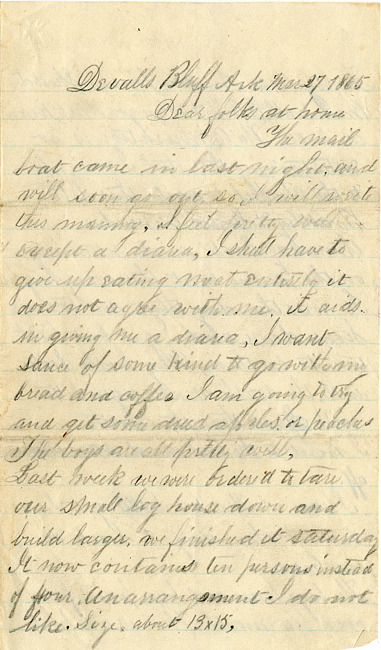 Devalls Bluff Ark Mar 27 1865
Dear folks at home
The mail
boat came in last night, and
will soon go out, so I will write
this morning, I feel pretty well
except a diarea, I shall have to
give up eating meat entirely it
does not agree with me. it aids
in giving me a diarea, I want
sauce of some kind to go with my
bread and coffee I am going to try
and get some dried apples or peaches
The boys are all pretty well,
Last week we were ordered to tare
our small log house down and
build larger, we finished it saturday
It now contains ten persons instead
of four. An arrangement I do not
like. Size, about 13x15,